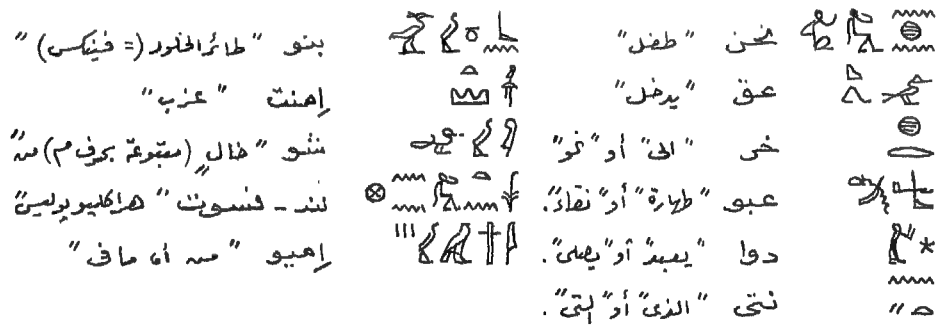 نخن "طفل"
عق "يدخل"
خر "الى" أو "نحو"
عبو "طهارة" أو "نقاء".
دوا "يعبد" أو "يصلى".
نتى "الذى" أو "التى".
بنو "طائر الخلود (= فينكس)"
إمنت "غرب"
شو "خالٍ (متبوعة بحرف م) من"
"هراكليوبوليس"
إميو "من أو ما فى"